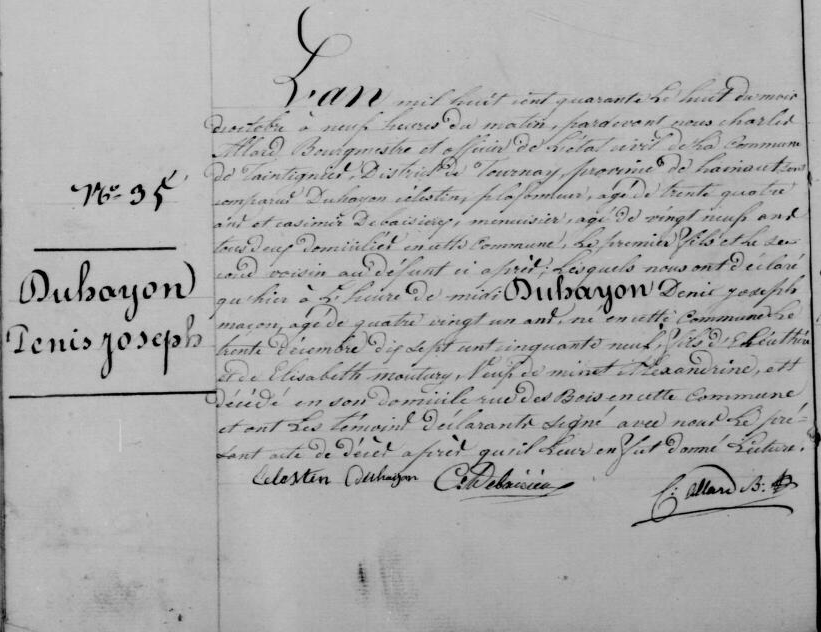 No. 35
Duhayon
Denis Joseph
L'an mil huit cent quarante Le huit du mois
d'octobre à neuf heures du matin, pardevant nous charles
Allard Bourgmestre et officier de L'état civil de La Commune
de Taintignies, District de Tournay, province de hainaut sont
comparus Duhayon célestin, plafonneur, agé de trente quatre
ans et casimir Debaisieux, menuisier, agé de vingt neuf ans
tous deux domiciliés en cette Commune, Le premier fils et Le se-
cond voisin au défunt ci après; Lesquels nous ont déclaré
qu'hier à L'heure de midi Duhayon Denis Joseph
maçon, agé de quatre vingt un ans, né en cette Commune Le
trente décembre dix sept cent cinquante neuf, fils d'Eleuthère
et de Elisabeth moutury, Veuf de minet Alexandrine, est
décédé en son domicile rue des Bois en cette Commune
et ont Les témoins déclarants signé avec nous Le pré-
sent acte de décès après qu'il Leur en fut donné Lecture.
Celestin duhayon C. Debaisieux C: Allard B: